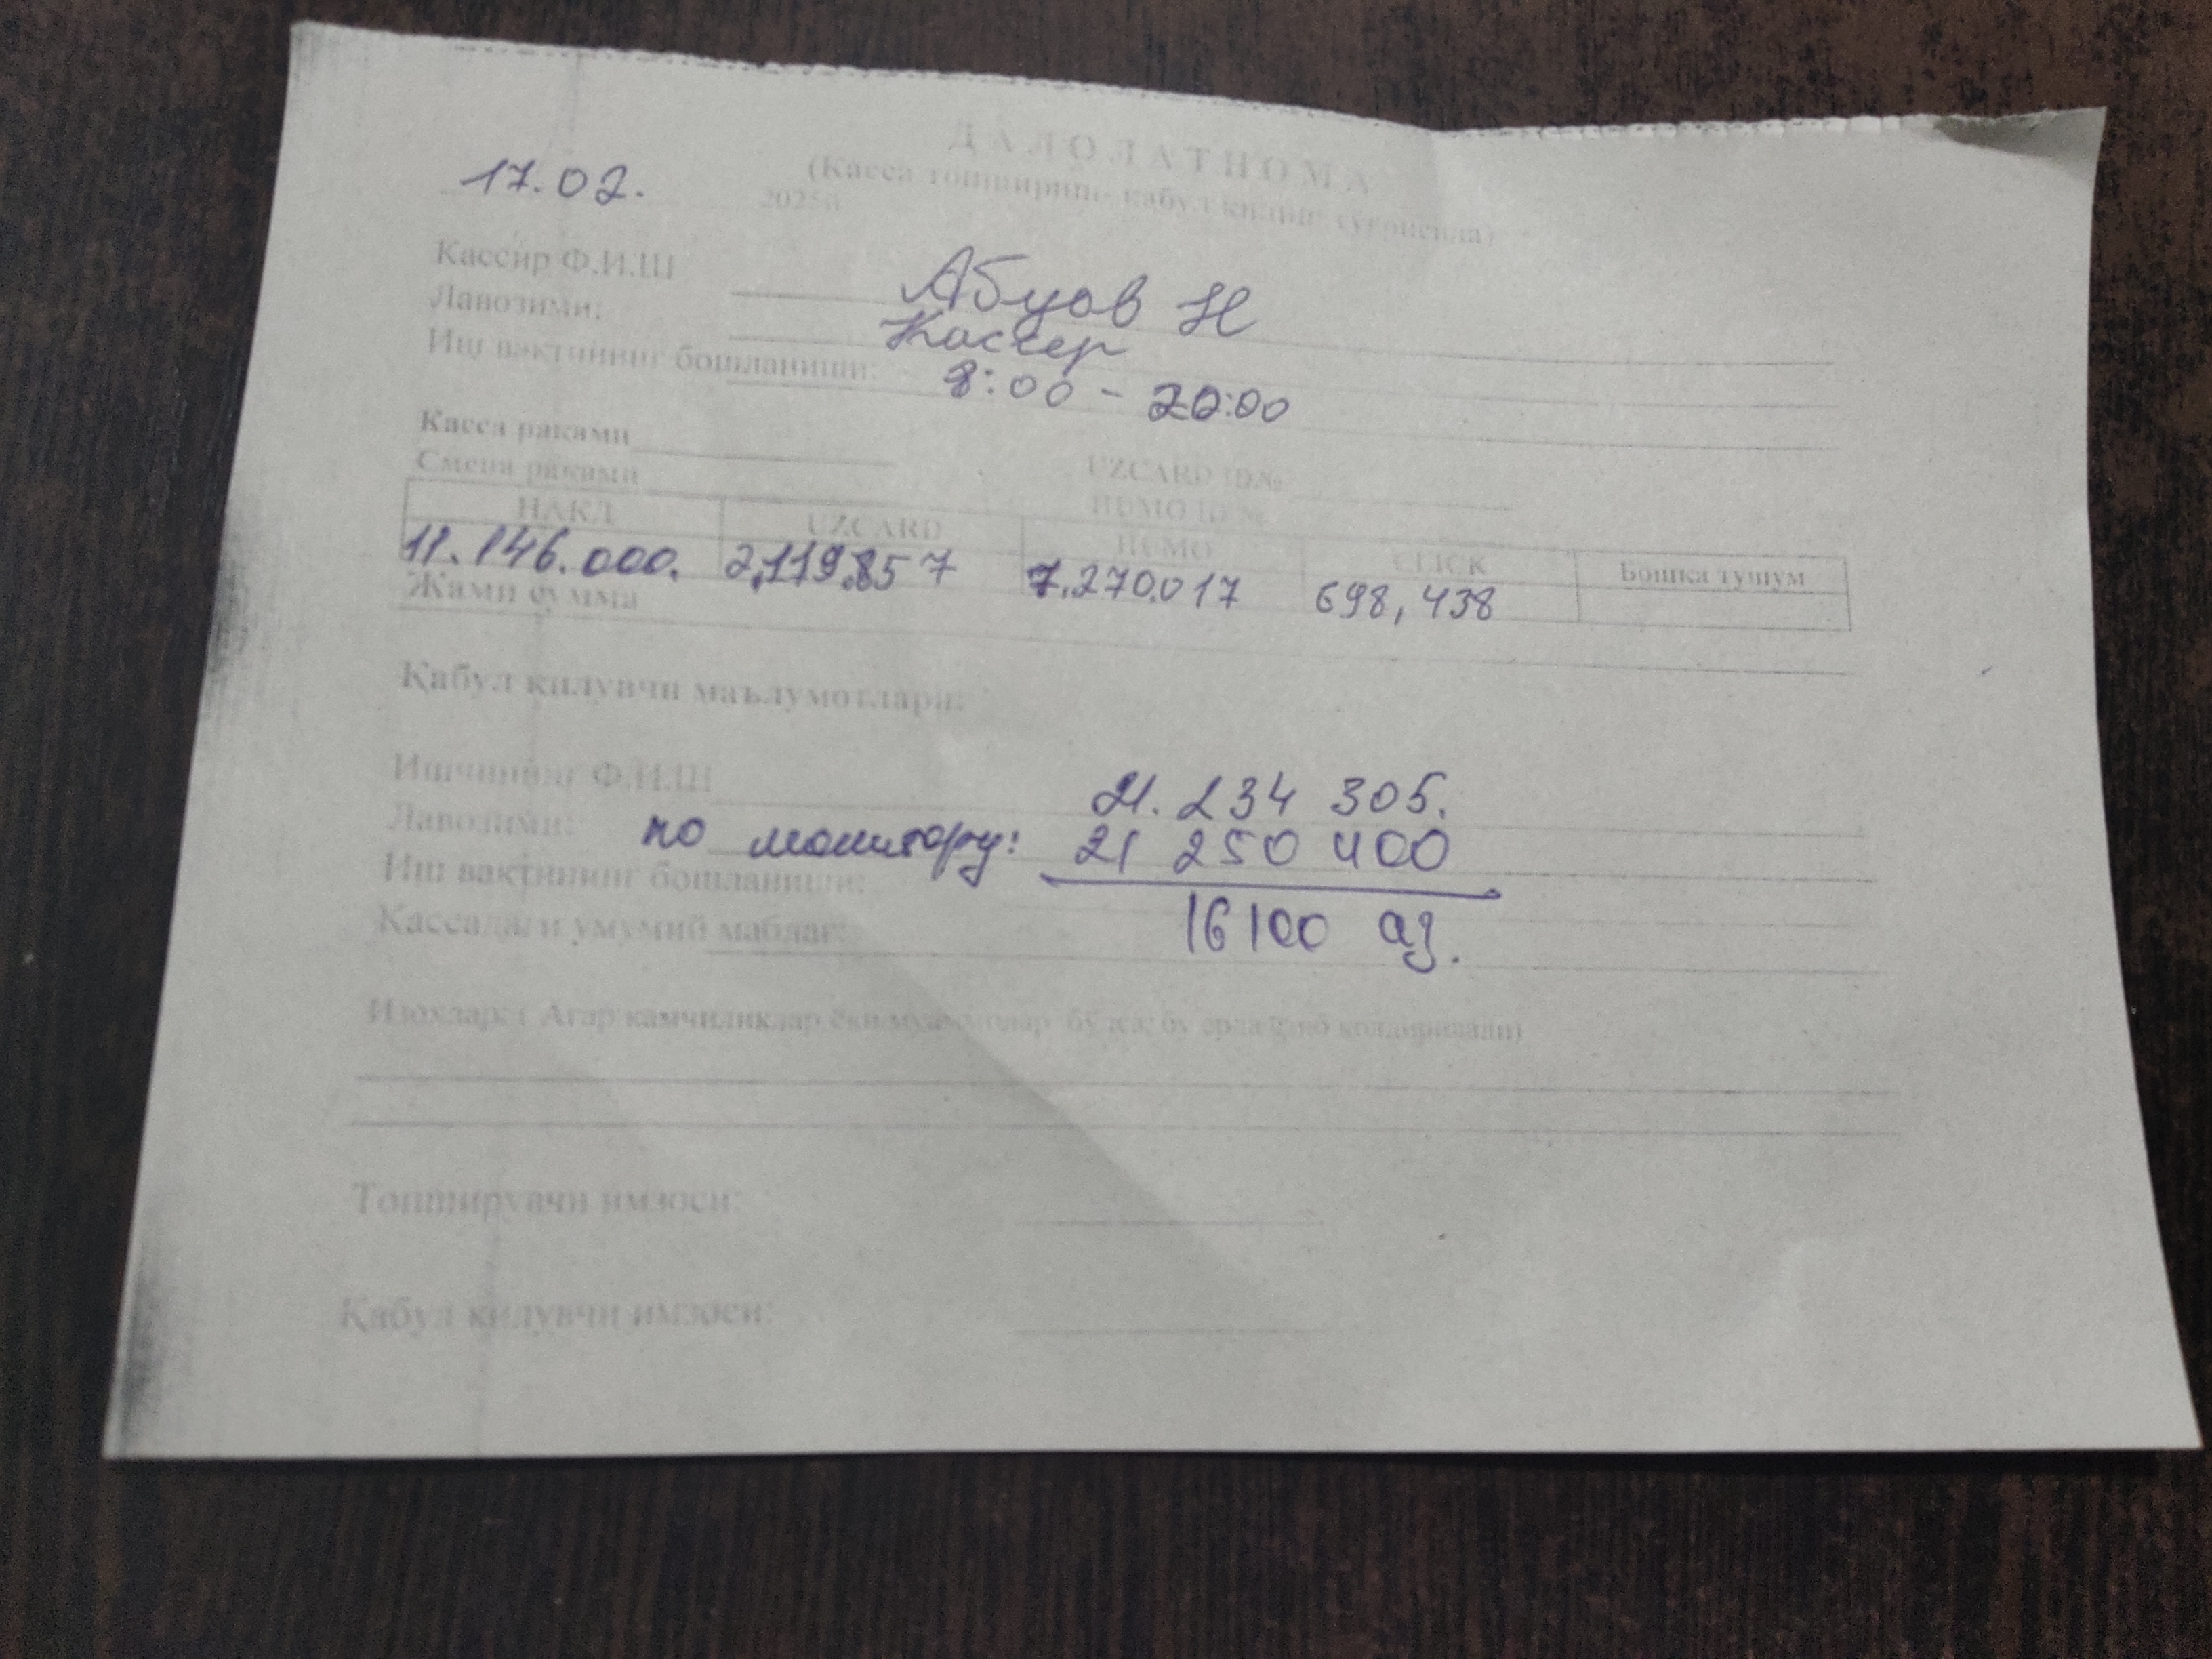 ДАЛОЛАТНОМА
(Касса топшириш- кабул килиш тугрисида)
17.02. 2025й
Кассир Ф.И.Ш Абуов Н
Лавозими: Кассер
Иш вактининг бошланиши: 8:00 - 20:00
Касса раками
Смена раками UZCARD ID№
HUMO ID №
НАКД UZCARD HUMO CLICK Бошка тушум
11.146.000. 2,119.857 7.270.017 698,438
Жами сумма
Қабул қилувчи маълумотлари:
Ишчининг Ф.И.Ш 21.234 305.
Лавозими: по монитору: 21 250 400
Иш вақтининг бошланиши:
Кассадаги умумий маблағ: 16100 аз.
Изохлар: ( Агар камчиликлар ёки муаммолар бўлса, бу ерда қайд қолдирилади)
Топширувчи имзоси:
Қабул қилувчи имзоси: